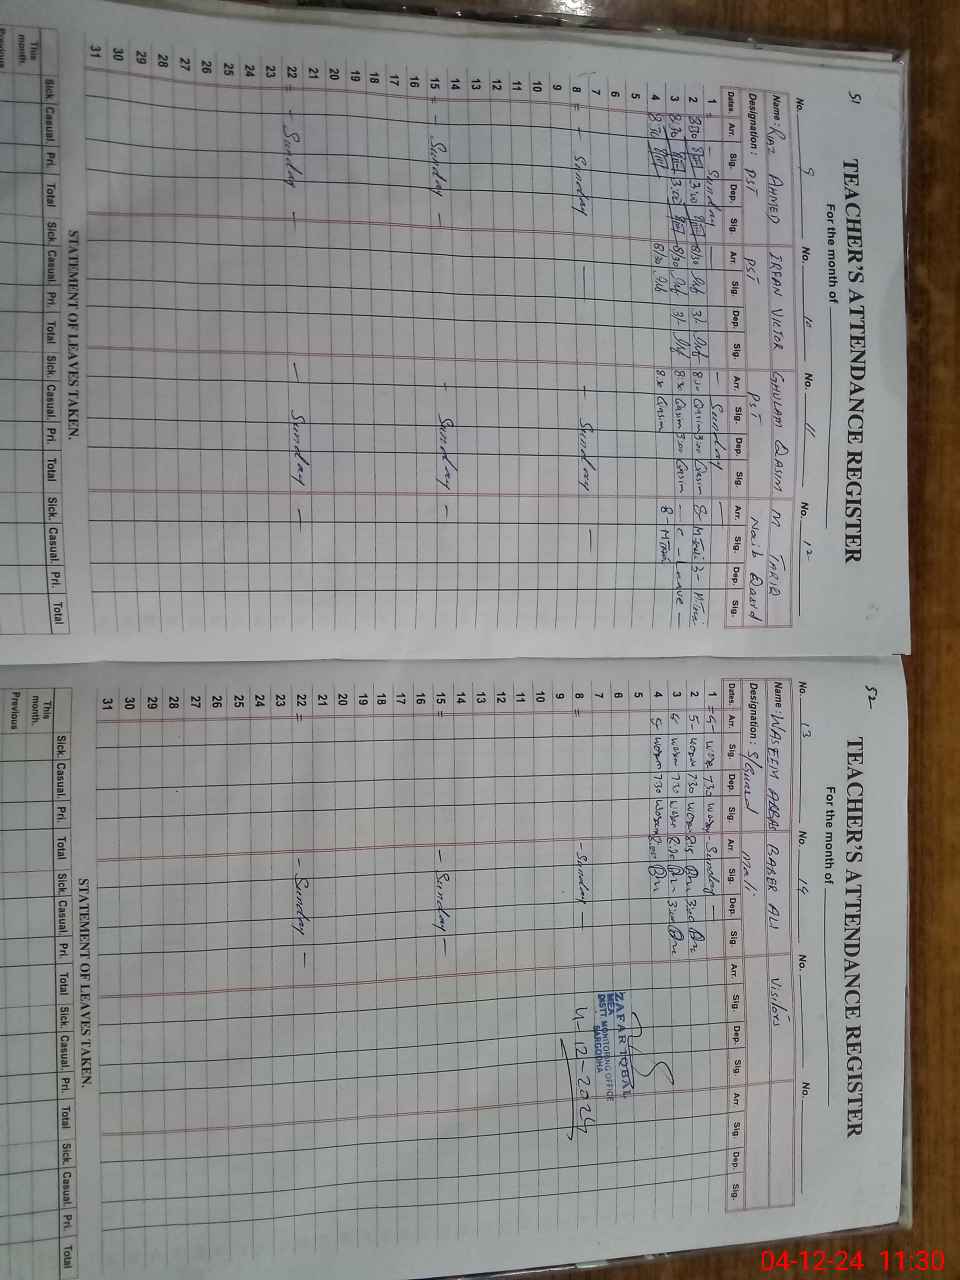 51
TEACHER'S ATTENDANCE REGISTER
For the month of
No. 9 No. 10 No. 11 No. 12
Name: RIAZ AHMED IRFAN VICTOR GHULAM QASIM M TARIQ
Designation: PST PST PST Naib Qasid
Dates. Arr. Sig. Dep. Sig. Arr. Sig. Dep. Sig. Arr. Sig. Dep. Sig. Arr. Sig. Dep. Sig.
1 = - Sunday - Sunday -
2 8:30 3:00 8/30 3/- 8:30 Qasim 3:00 Qasim 8- 3-
3 8:30 3:00 8/30 3/- 8:30 Qasim 3:00 Qasim - C - Leave -
4 8:30 8/30 8:30 Qasim 8-
5
6
7
8 = - Sunday - - Sunday -
9
10
11
12
13
14
15 = - Sunday - - Sunday -
16
17
18
19
20
21
22 = - Sunday - - Sunday -
23
24
25
26
27
28
29
30
31
STATEMENT OF LEAVES TAKEN.
Sick. Casual. Pri. Total Sick. Casual. Pri. Total Sick. Casual. Pri. Total Sick. Casual. Pri. Total
This month.
Previous
52
TEACHER'S ATTENDANCE REGISTER
For the month of
No. 13 No. 14 No. No.
Name: WASEEM ABBAS BABER ALI Visitors
Designation: S/Guard Mali
Dates. Arr. Sig. Dep. Sig. Arr. Sig. Dep. Sig. Arr. Sig. Dep. Sig. Arr. Sig. Dep. Sig.
1 = 5- 730 - Sunday -
2 5- 730 8:15 3:00
3 730 8:20 3:00
4 5- 730 8:05
5
6
7
8 = - Sunday -
9
10
11
12
13
14
15 = - Sunday -
16
17
18
19
20
21
22 = - Sunday -
23
24
25
26
27
28
29
30
31
ZAFAR IQBAL
MEA
DISTT MONITORING OFFICE
SARGODHA
4-12-2024
STATEMENT OF LEAVES TAKEN.
Sick. Casual. Pri. Total Sick. Casual. Pri. Total Sick. Casual. Pri. Total Sick. Casual. Pri. Total
This month.
Previous
04-12-24 11:30